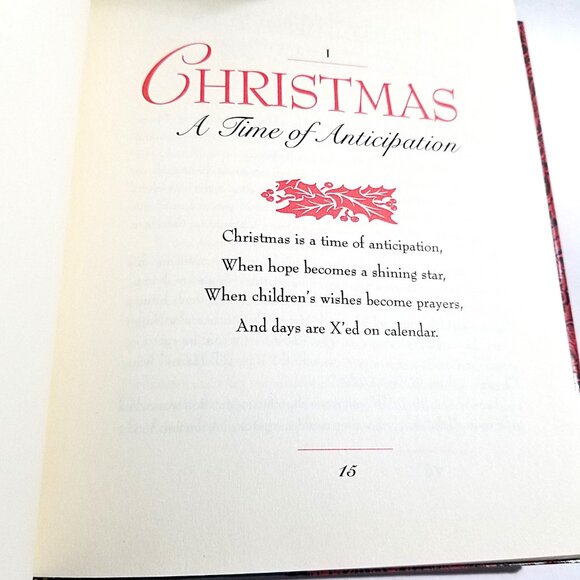 1
CHRISTMAS
A Time of Anticipation
Christmas is a time of anticipation,
When hope becomes a shining star,
When children's wishes become prayers,
And days are X'ed on calendar.
15